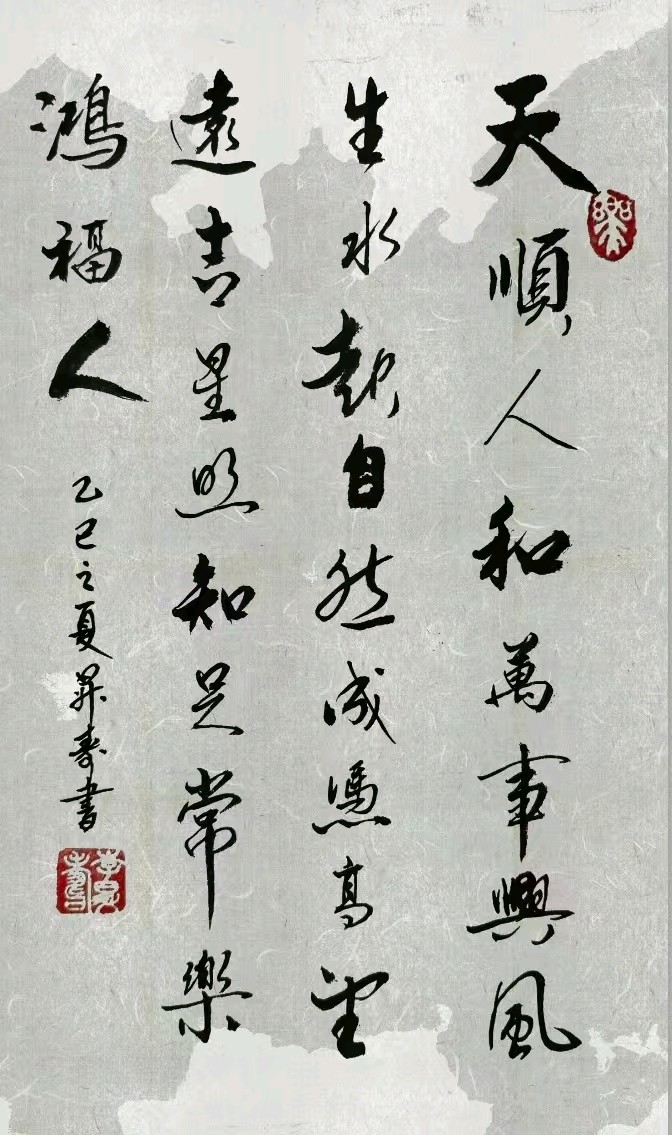 天順人和萬事興風
生水起自然成憑高望
遠吉星照知足常樂
鴻福人
乙巳之夏昇壽書